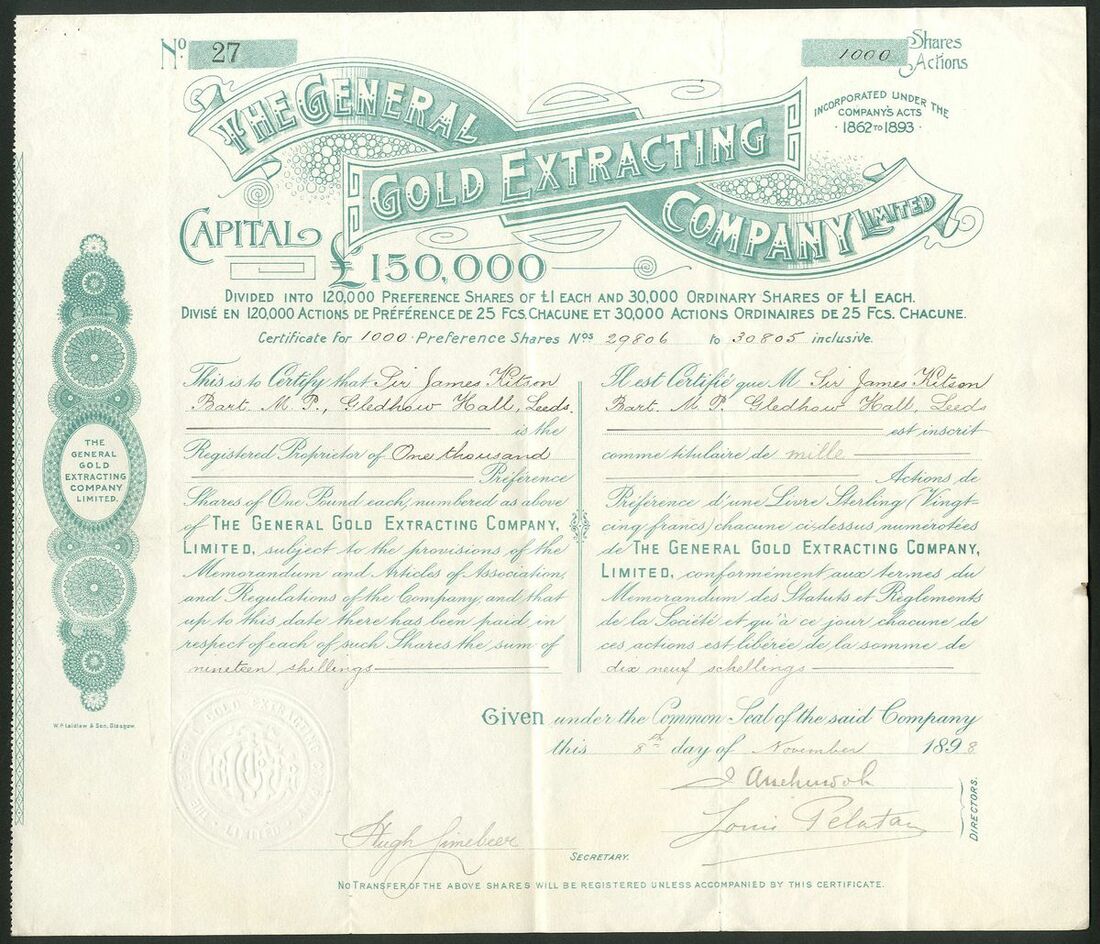 No. 27
1000 Shares
Actions
THE GENERAL
GOLD EXTRACTING
COMPANY LIMITED
INCORPORATED UNDER THE
COMPANY'S ACTS
· 1862 TO 1893 ·
CAPITAL
£150,000
DIVIDED INTO 120,000 PREFERENCE SHARES OF £1 EACH AND 30,000 ORDINARY SHARES OF £1 EACH.
DIVISÉ EN 120,000 ACTIONS DE PRÉFÉRENCE DE 25 FCS. CHACUNE ET 30,000 ACTIONS ORDINAIRES DE 25 FCS. CHACUNE.
Certificate for 1000 Preference Shares Nos 29806 to 30805 inclusive.
This is to Certify that Sir James Kitson
Bart. M. P., Gledhow Hall, Leeds.
is the
Registered Proprietor of One thousand
Préférence
Shares of One Pound each, numbered as above
of THE GENERAL GOLD EXTRACTING COMPANY,
LIMITED, subject to the provisions of the
Memorandum and Articles of Association,
and Regulations of the Company, and that
up to this date there has been paid in
respect of each of such Shares the sum of
nineteen shillings
Il est Certifié que M Sir James Kitson
Bart. M. P. Gledhow Hall, Leeds
est inscrit
comme titulaire de mille
Actions de
Préférence d'une Livre Sterling (Vingt-
cinq francs) chacune ci-dessus numérotées
de THE GENERAL GOLD EXTRACTING COMPANY,
LIMITED, conformément aux termes du
Mémorandum des Statuts et Règlements
de la Société et qu'à ce jour chacune de
ces actions est libérée de la somme de
dix neuf schellings
THE
GENERAL
GOLD
EXTRACTING
COMPANY
LIMITED.
W. & Laidlaw & Son, Glasgow
Given under the Common Seal of the said Company
this 8th day of November 1898
Louis Pelatan
DIRECTORS.
Hugh
SECRETARY.
NO TRANSFER OF THE ABOVE SHARES WILL BE REGISTERED UNLESS ACCOMPANIED BY THIS CERTIFICATE.